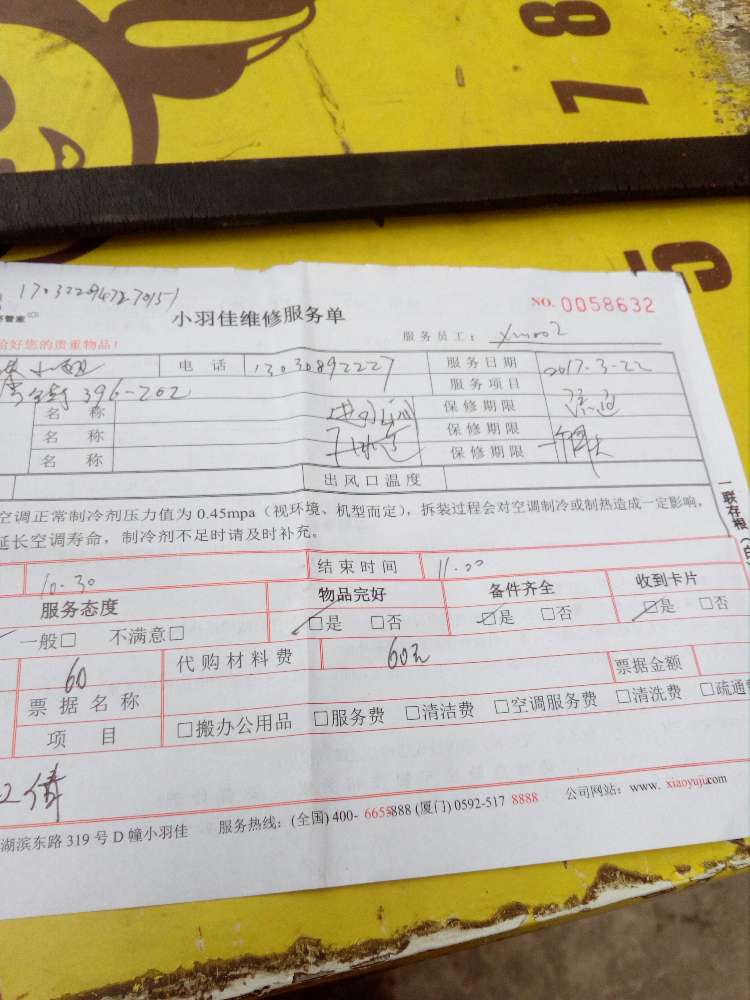 8
7
5
170322947270151
NO. 0058632
小羽佳维修服务单
服务员工: xm002
给好您的贵重物品!
电话 13030892227 服务日期 2017.3-22
396-202 服务项目
名称 保修期限
名称 保修期限
名称 保修期限 一个月
出风口温度
空调正常制冷剂压力值为 0.45mpa (视环境、机型而定), 拆装过程会对空调制冷或制热造成一定影响,
延长空调寿命, 制冷剂不足时请及时补充。
一联存根 (白
10.30 结束时间 11.00
服务态度 物品完好 备件齐全 收到卡片
一般□ 不满意□ □是 □否 □是 □否 □是 □否
60 代购材料费 60元 票据金额
票据名称
项目 □搬办公用品 □服务费 □清洁费 □空调服务费 □清洗费 □疏通费
湖滨东路 319 号 D 幢小羽佳 服务热线: (全国) 400- 6655888 (厦门) 0592-517 8888 公司网站: www. xiaoyujia.com